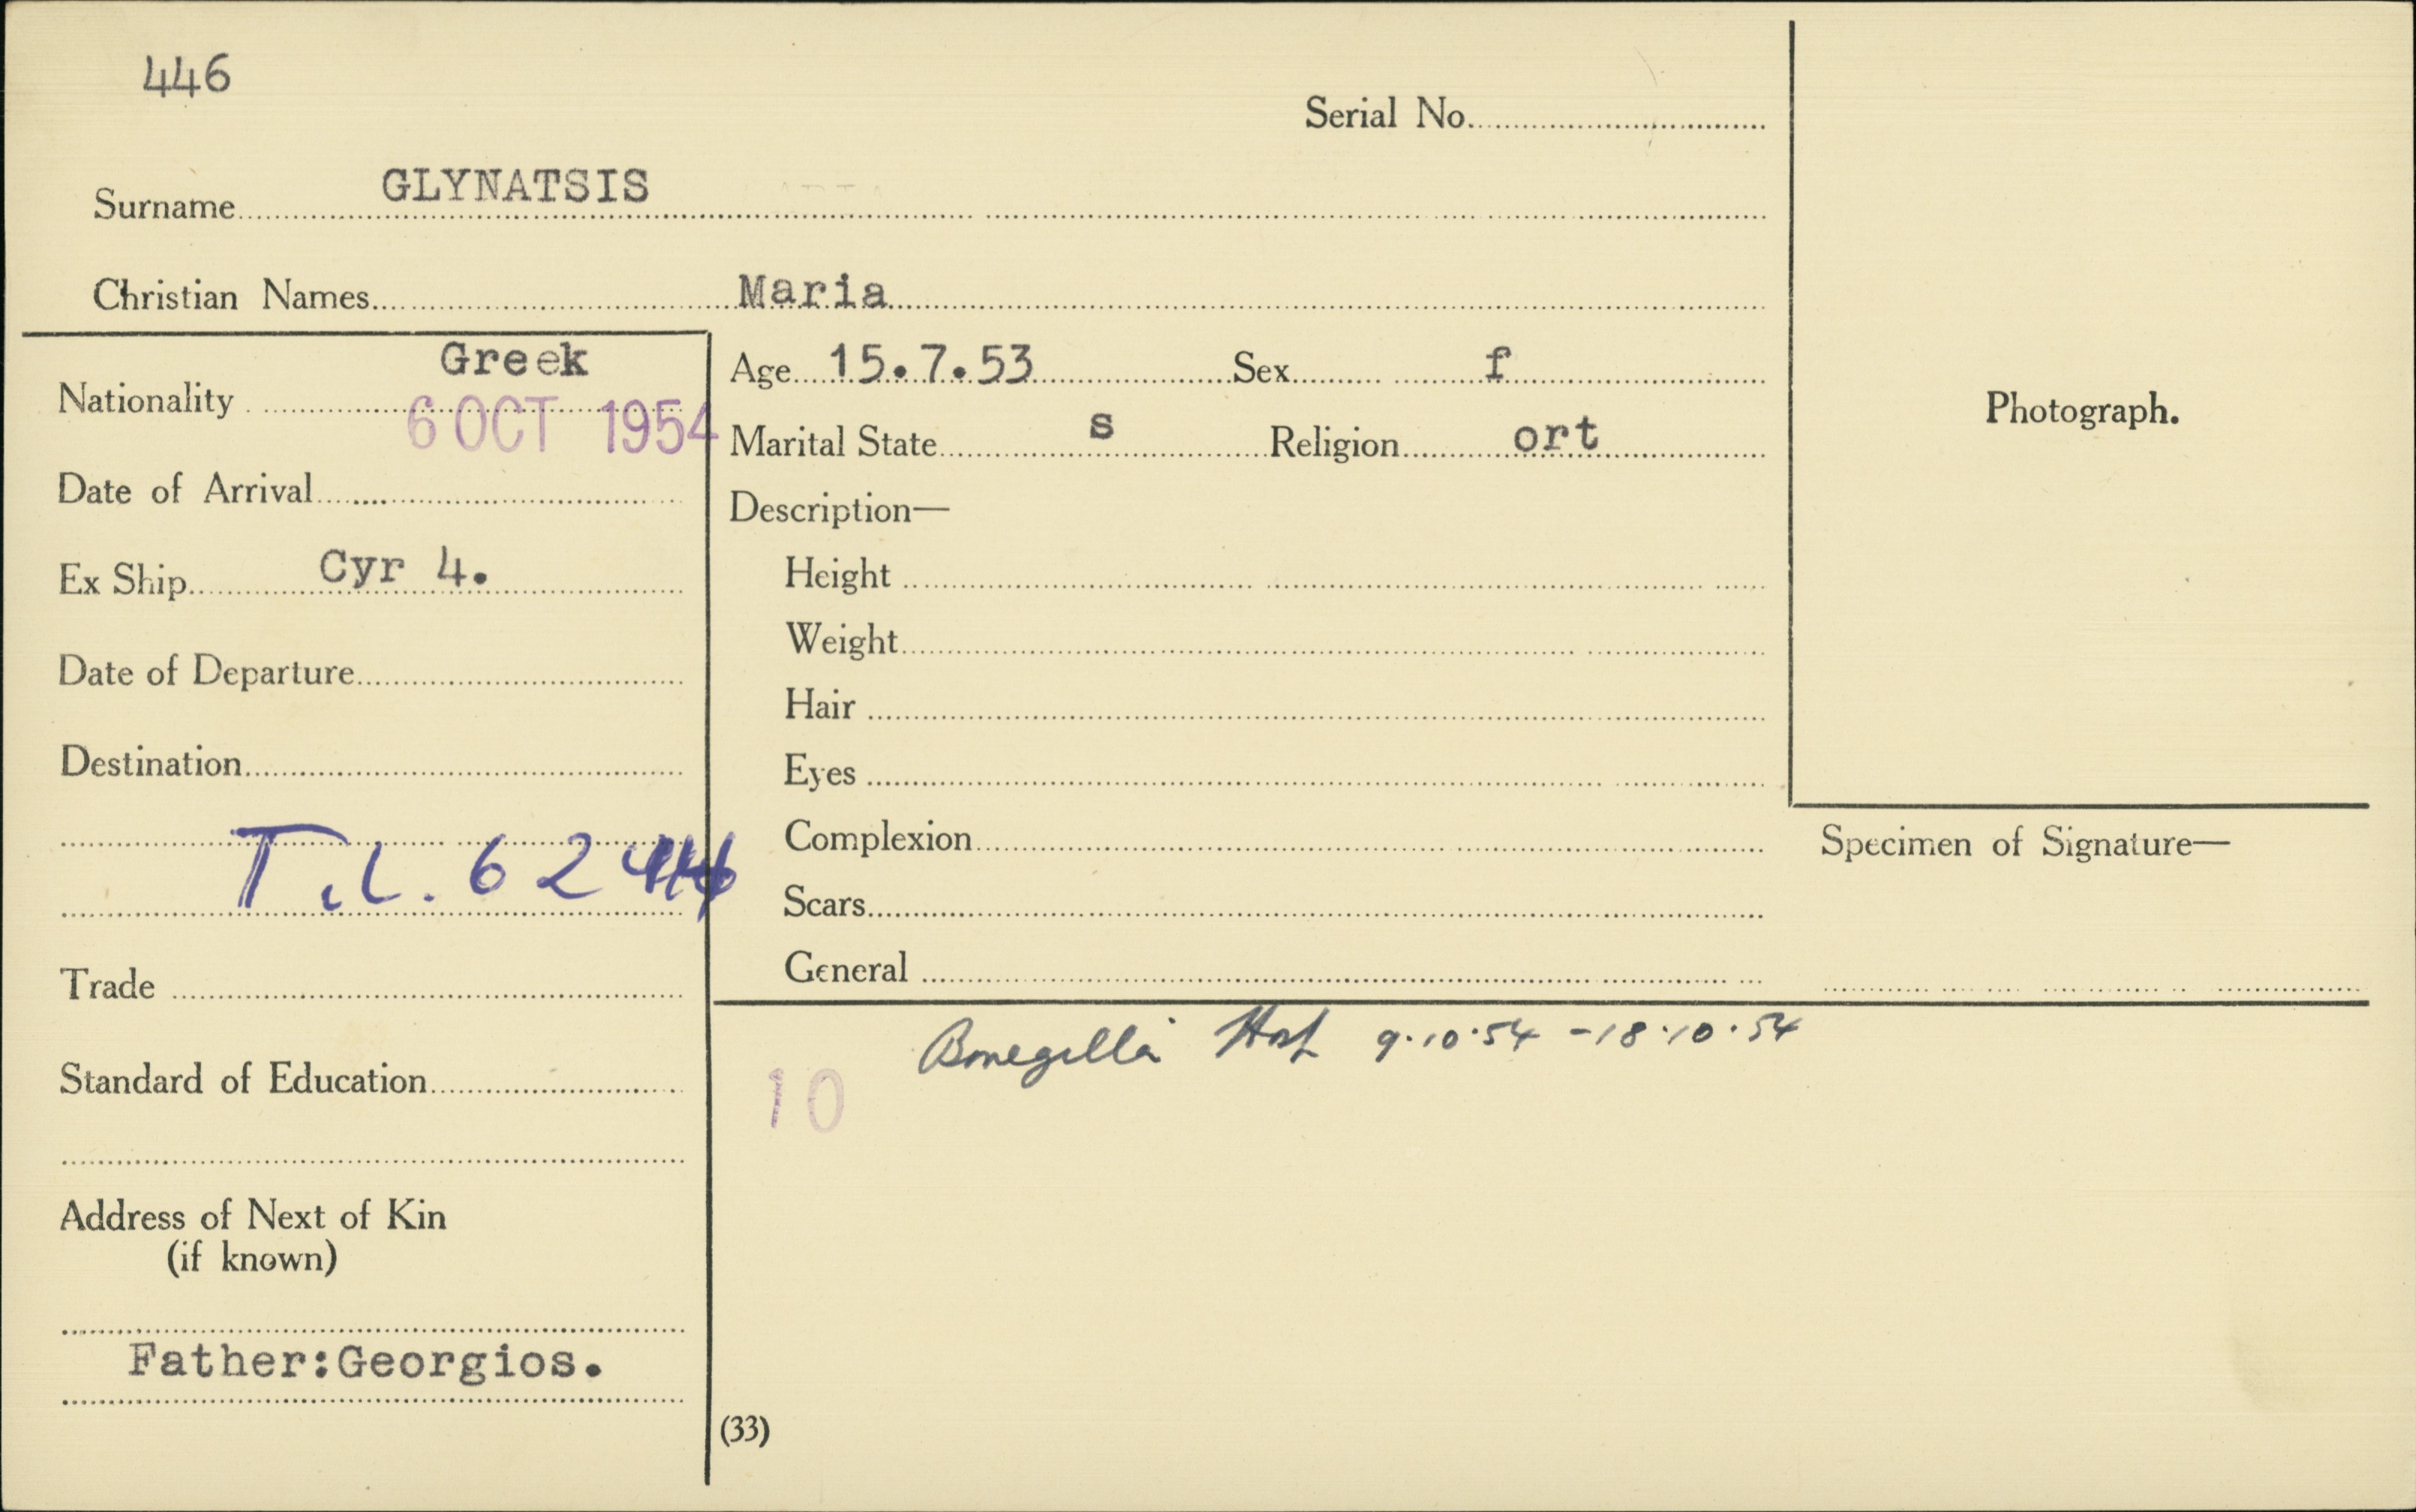 446
Serial No.
Surname GLYNATSIS
Christian Names Maria
Nationality Greek
6 OCT 1954
Date of Arrival
Ex Ship Cyr 4.
Date of Departure
Destination
T.L. 62
Trade
Standard of Education
Address of Next of Kin
(if known)
Father:Georgios.
Age 15.7.53 Sex f
Marital State s Religion ort
Description—
Height
Weight
Hair
Eyes
Complexion
Scars
General
Photograph.
Specimen of Signature—
Bonegilla Hosp 9.10.54 - 18.10.54
10
(33)